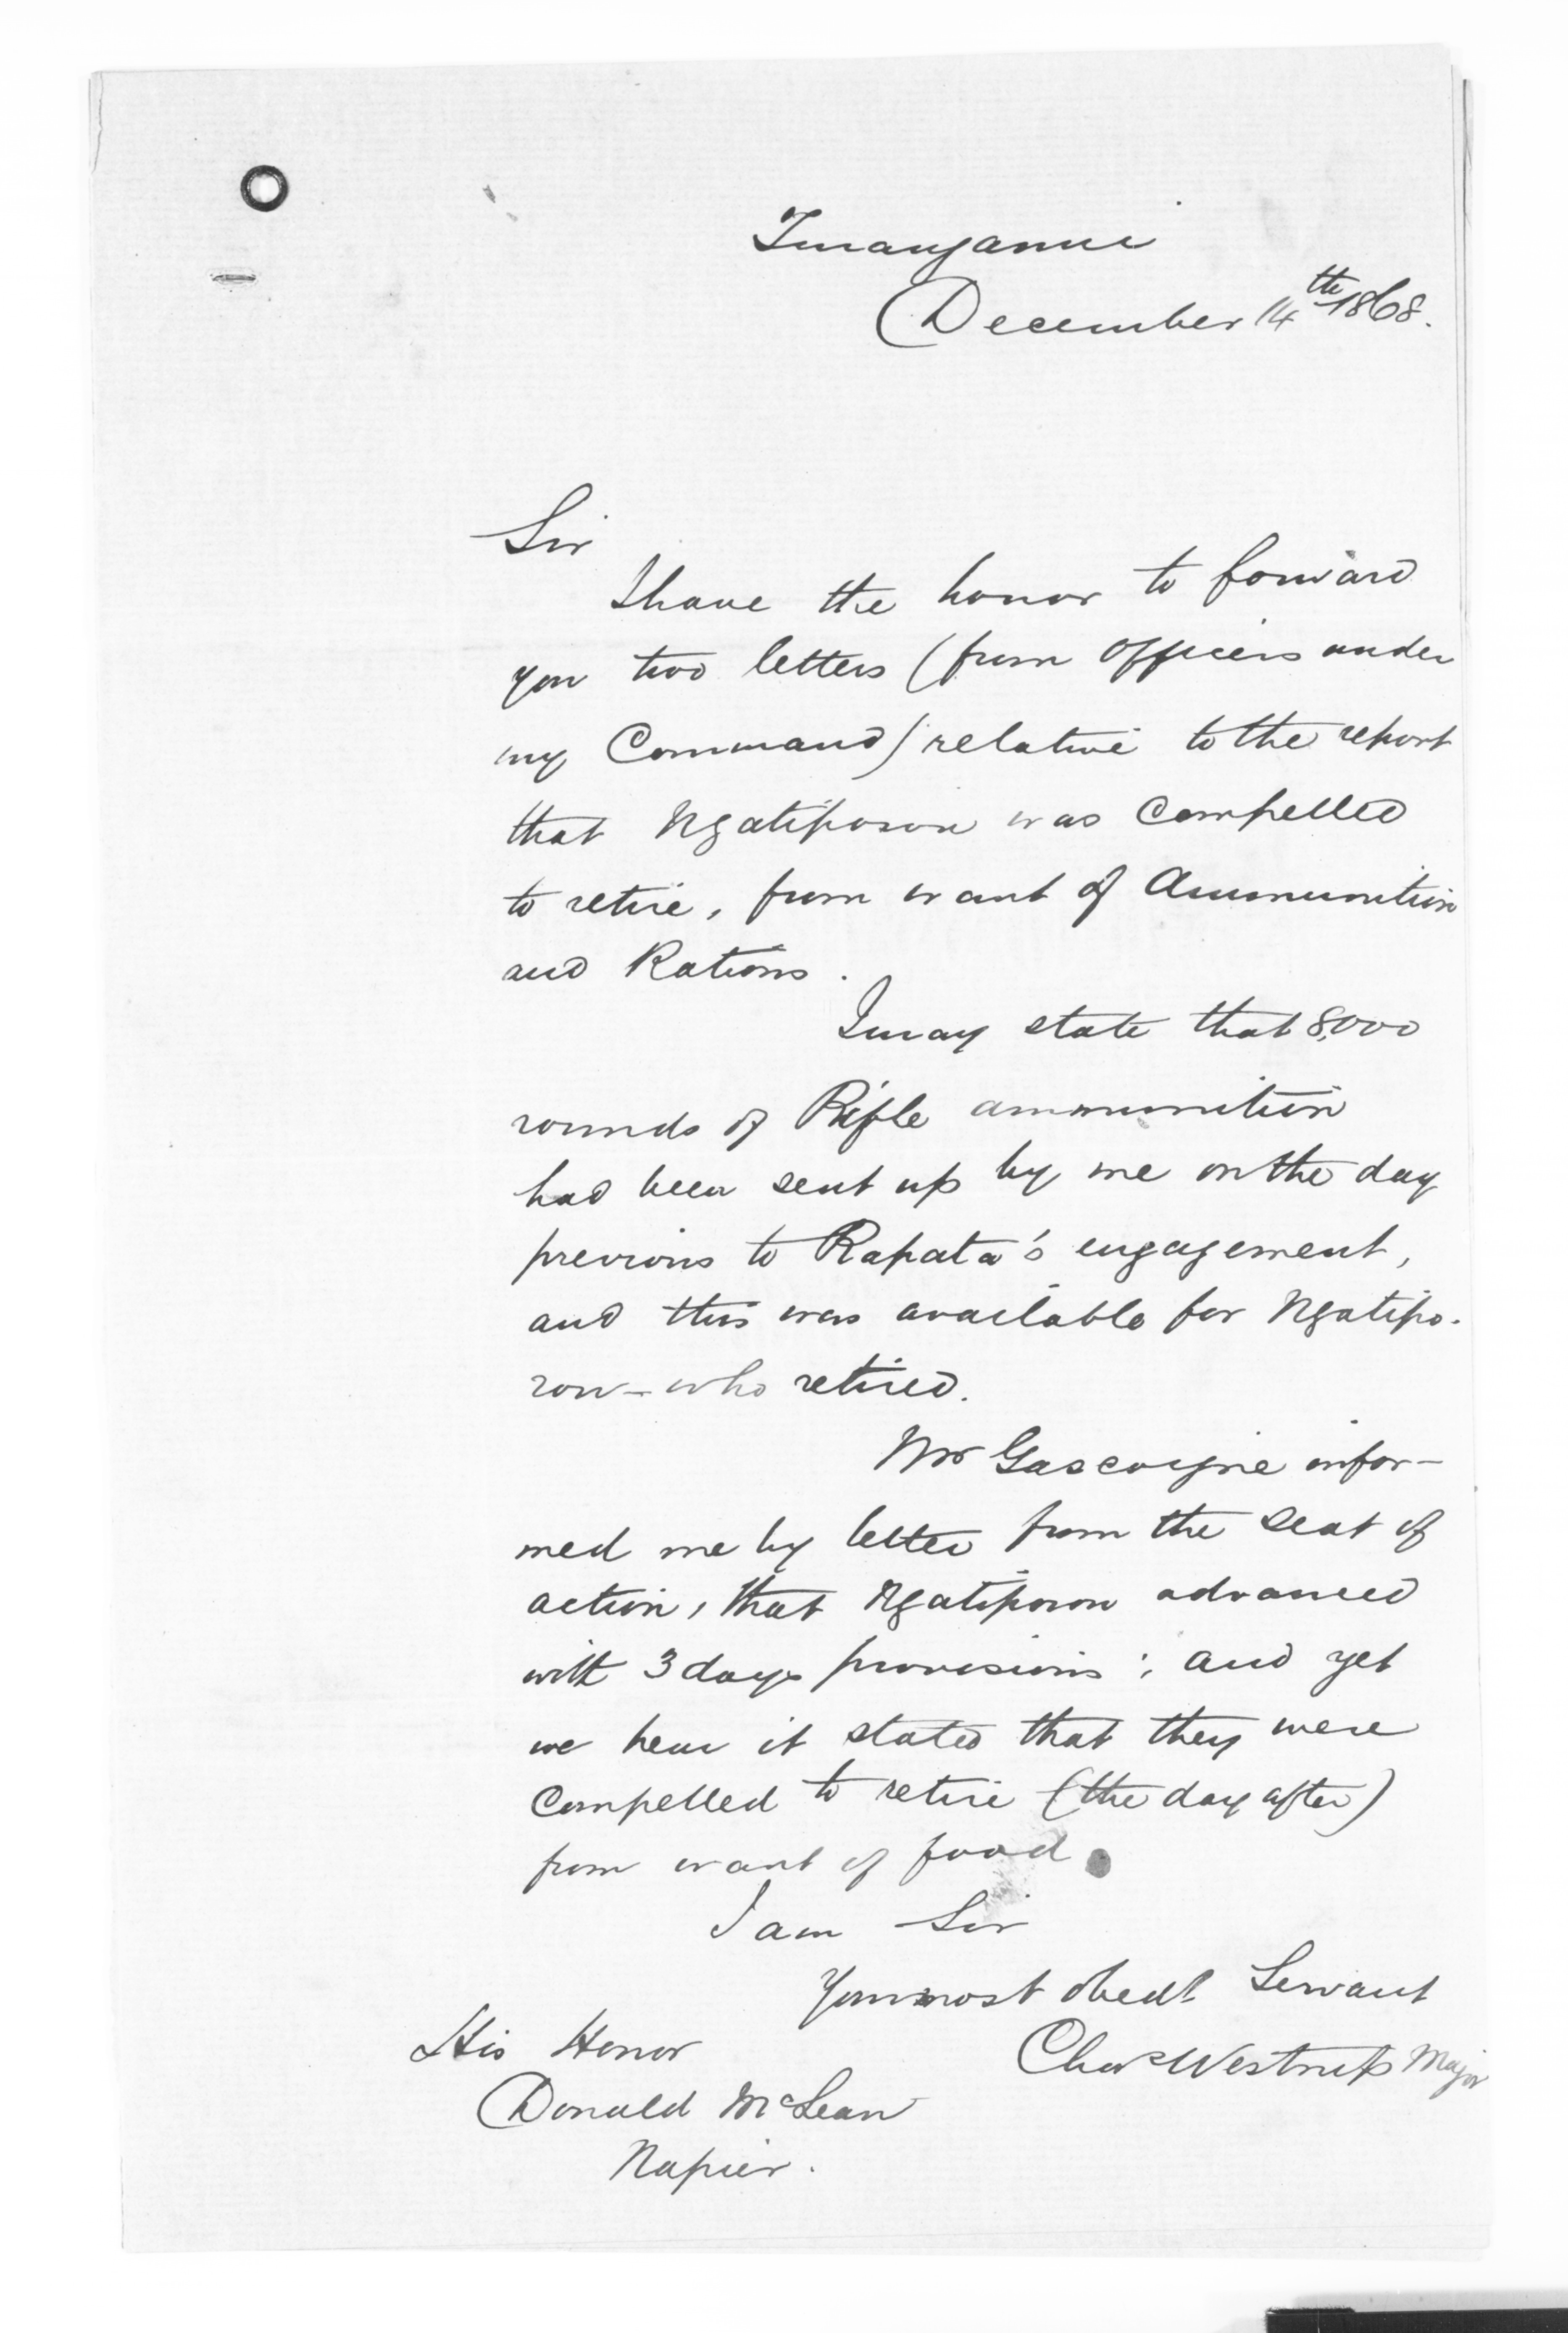 Turanganui
December 14th 1868.
Sir
I have the honor to forward
you two letters (from Officers under
my Command) relative to the report
that Ngatiporou was Compelled
to retire, from want of Ammunition
and Rations.
I may state that 8,000
rounds of Rifle ammunition
had been sent up by me on the day
previous to Rapata's engagement,
and this was available for Ngatipo-
rou - who retired.
Mr Gascoigne infor-
med me by letter from the seat of
action, that Ngatiporou advanced
with 3 days provisions; and yet
we hear it stated that they were
Compelled to retire (the day after)
from want of food.
I am Sir
Your most obedt Servant
Chas Westrup Major
His Honor
Donald McLean
Napier.